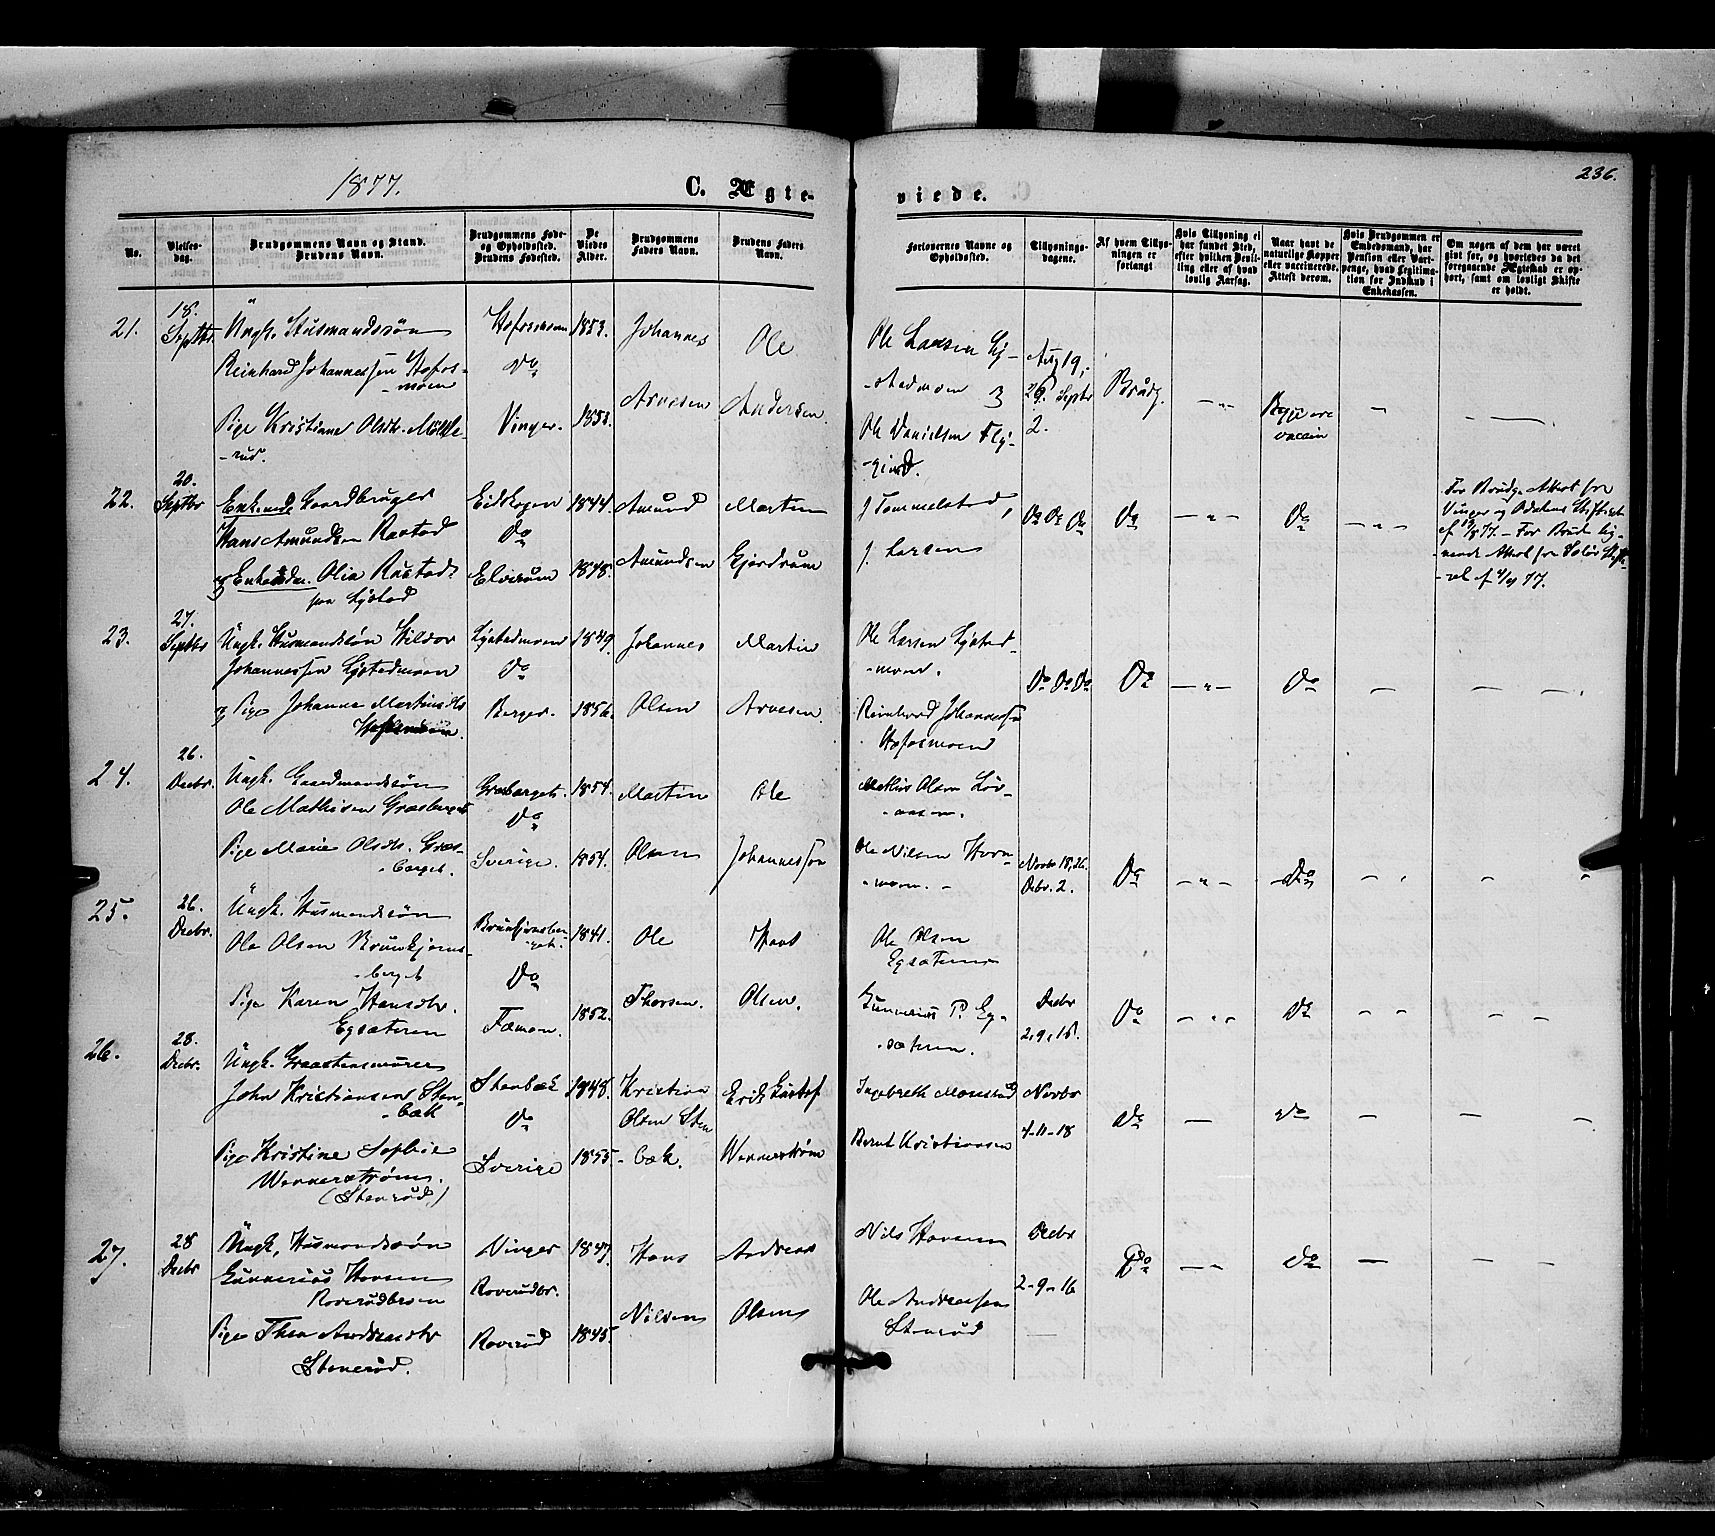 1877.
C. Ægte-
viede.
236.
No.
Vielses-
dag.
Brudgommens Navn og Stand.
Brudens Navn.
Brudgommens Føde-
og Opholdssted.
Brudens Fødested.
De
Viedes
Alder.
Brudgommens
Faders Navn.
Brudens Faders
Navn.
Forlovernes Navne og
Opholdssted.
Tillysnings-
dagene.
Af hvem Tillys-
ningen er
forlangt
Hvis Tillysning ei
har fundet Sted,
efter hvilken Bevil-
ling eller af hvad
lovlig Aarsag.
Naar havt de
naturlige Kopper
eller vaccinerede.
Attest derom.
Hvis Brudgommen er
Embedsmand, har
Pension eller Vart-
penge, hvad Legitima-
tion for Indskud i
Enkekassen.
Om nogen af dem har været
gift før, og hvorledes da det
foregaaende Ægteskab er op-
hørt, samt om lovligt Skifte
er holdt.
21.
18.
Septbr
Ungk. Husmandssøn
Reinhard Johannessen Hofos-
-moen
Pige Kristiane Olsdtr.
-rud.
Hofosmoen
Do
Vinger.
1853.
1853.
Johannes
Arnesen
Ole
Andersen
Ole Larsen Ly-
-stadmoen
Ole Danielsen
Aug 19,
26. Septbr
2.
Brudg.
Begge ere
vaccin
22.
20.
Septbr
Enkemd. Gaardbruger
Hans Amundsen Rastad
og Enke Olia Rustad
paa Lystad
Eidskogen
Do
Elverum
1844.
1848.
Amund
Amundsen
Martin
Gjerdrum
J. Tommelstad,
J. Larsen
Do Do Do
Do
Do
For Brudg. Attest fra
Vinger og Odalens Skifteret
For Brud lig-
-nende Attest fra Solør
23.
27.
Septbr
Ungk. Husmandssøn Hildor
Johannessen Lystadmoen
og Pige Johanne Martinsdtr
Lystadmoen
Do
Berger.
1849.
1856.
Johannes
Olsen
Martin
Arnesen
Ole Larsen Lystad-
-moen.
Reinhard Johannessen
Hofosmoen
Do Do Do
Do
Do
24.
26.
Decbr.
Ungk. Gaardmandssøn
Ole Mathisen Grasberget
Pige Marie Olsdtr. Gras-
-berget.
Grasberget.
Do
Sverige.
1854.
1854.
Martin
Olsen
Ole
Johannessen
Mathis Olsen Løv-
-aasen.
Ole Nilsen
-moen.
Novbr 18, 26.
Decbr. 2.
Do
Do
25.
26.
Decbr.
Ungk. Husmandssøn
Ole Olsen
-berget
Pige Karen Hansdtr.
Egsæteren
Do
1841.
1852.
Ole
Thorsen.
Hans
Olsen.
Ole Olsen
Egsæteren
Gunnerius P. Eg-
-sæteren.
Decbr
2, 9, 16.
Do
Do
26.
28.
Decbr.
Ungk. Graastensmurer
John Kristiansen Sten-
-bæk
Pige Kristine Sophie
Wennerstrøm.
(Stenrød.)
Stenbæk
Do
Sverige
1848.
1855.
Kristian
Olsen Sten
-bæk.
Erik Gustof
Wennerstrøm
Ingebreth
Bernt Kristiansen
Novbr
4-11-18
Do
Do
27.
28
Decbr
Ungk. Husmandssøn
Gunnerius Hansen
Pige Thea Andreasdtr
Stenerød.
Vinger
Roverud
1847.
1845.
Hans
Nilsen
Andreas
Olsen
Nils Hansen
Ole Andreasen
Stenrød
Decbr
2-9-16
Do
Do